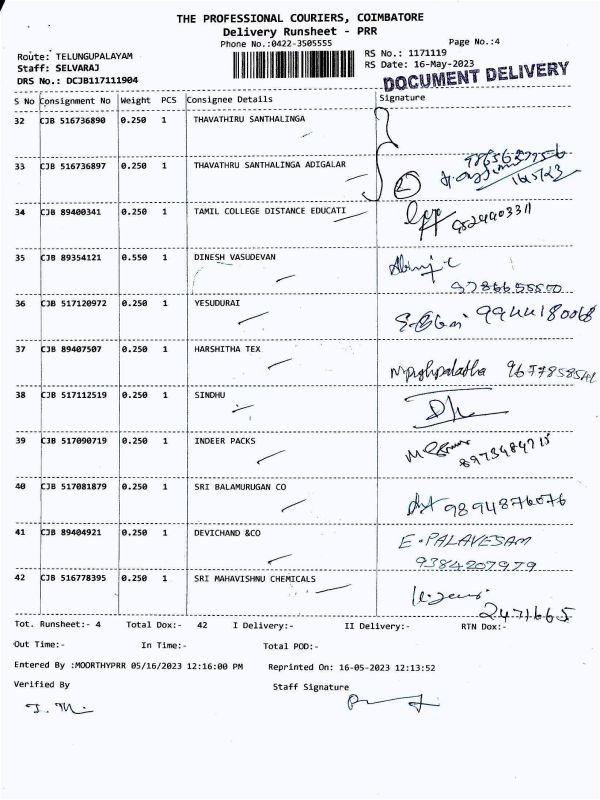 THE PROFESSIONAL COURIERS, COIMBATORE
Delivery Runsheet - PRR
Phone No.:0422-3505555 Page No.:4
Route: TELUNGUPALAYAM RS No.: 1171119
Staff: SELVARAJ RS Date: 16-May-2023
DRS No.: DCJB117111904 DOCUMENT DELIVERY
S No Consignment No Weight PCS Consignee Details Signature
32 CJB 516736890 0.250 1 THAVATHIRU SANTHALINGA
33 CJB 516736897 0.250 1 THAVATHRU SANTHALINGA ADIGALAR 2
16/5/23
34 CJB 89400341 0.250 1 TAMIL COLLEGE DISTANCE EDUCATI
35 CJB 89354121 0.550 1 DINESH VASUDEVAN
36 CJB 517120972 0.250 1 YESUDURAI 9944180068
37 CJB 89407507 0.250 1 HARSHITHA TEX
38 CJB 517112519 0.250 1 SINDHU
39 CJB 517090719 0.250 1 INDEER PACKS
40 CJB 517081879 0.250 1 SRI BALAMURUGAN CO
9894876076
41 CJB 89404921 0.250 1 DEVICHAND &CO E.PALAVESAM
9384207979
42 CJB 516778395 0.250 1 SRI MAHAVISHNU CHEMICALS
2471665
Tot. Runsheet:- 4 Total Dox:- 42 I Delivery:- II Delivery:- RTN Dox:-
Out Time:- In Time:- Total POD:-
Entered By :MOORTHYPRR 05/16/2023 12:16:00 PM Reprinted On: 16-05-2023 12:13:52
Verified By Staff Signature